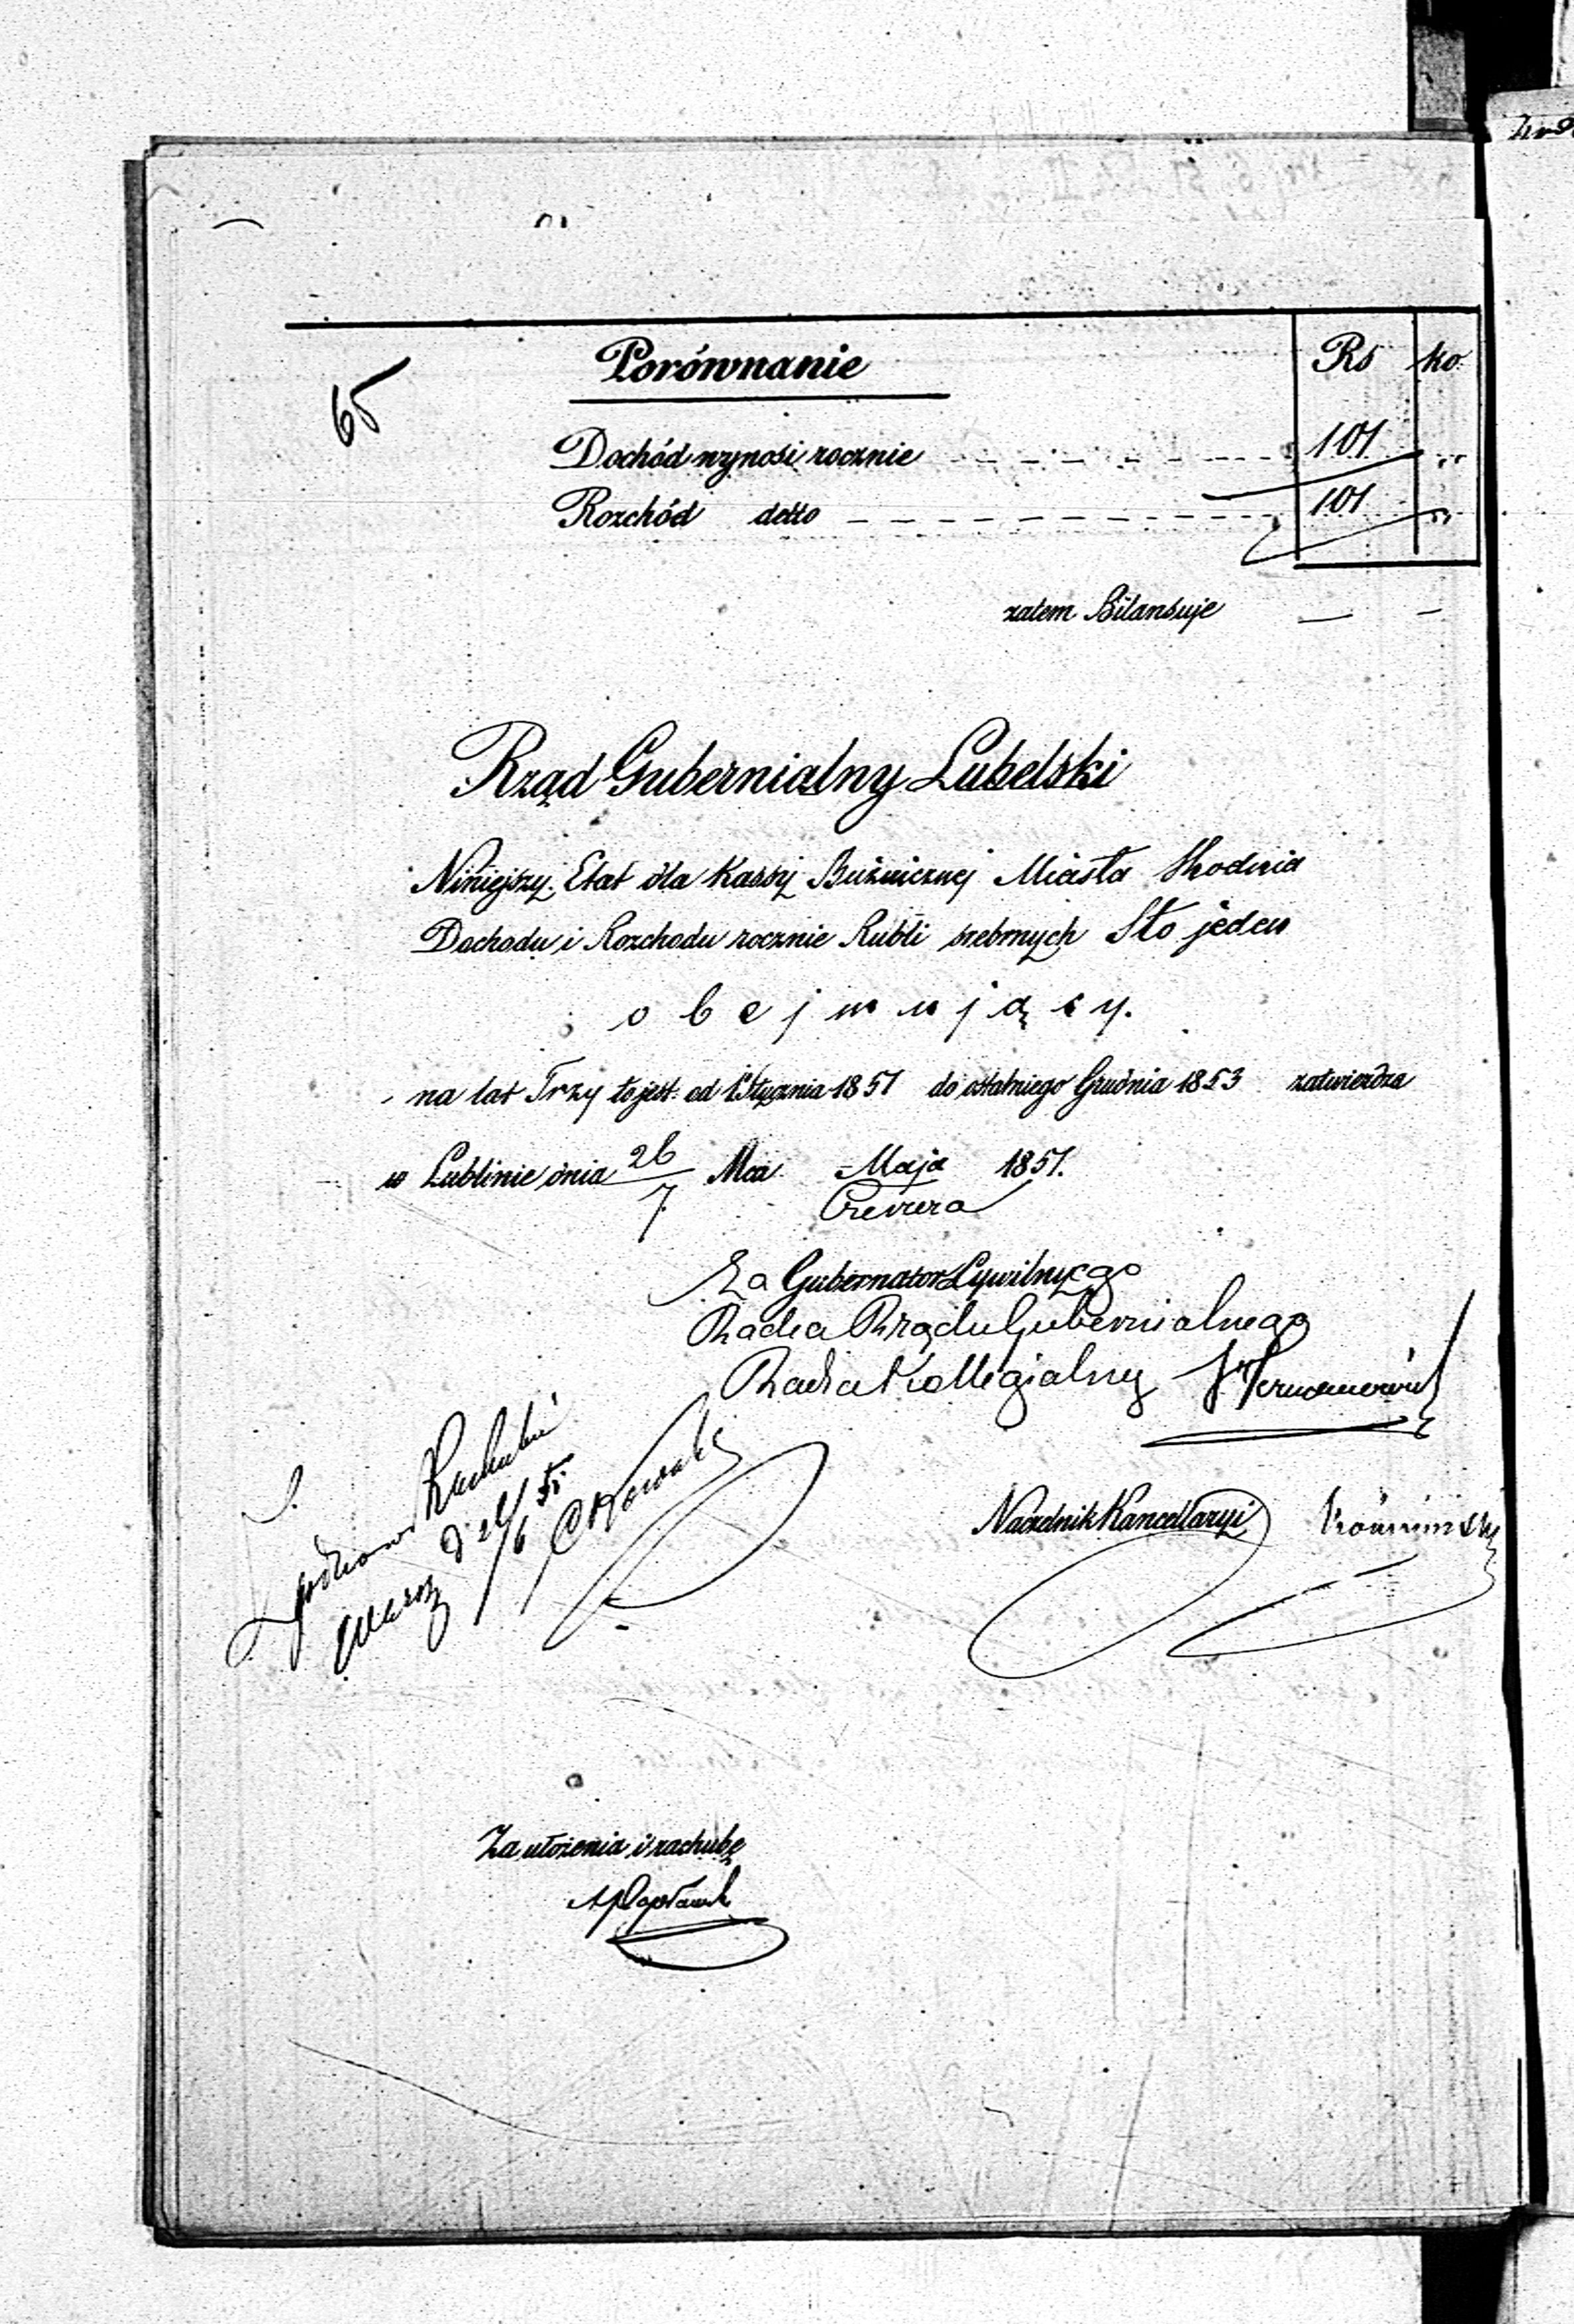 Porównanie
Rs ko.
65
Dochód wynosi rocznie 101 "
Rozchód detto 101 "
zatem Bilansuje — —
Rząd Gubernialny Lubelski
Niniejszy Etat dla Kassy Bużniczney Miasta
Dochodu i Rozchodu rocznie Rubli srebrnych Sto jeden
obejmujący.
na lat Trzy to jest od 1 Stycznia 1851 do ostatniego Grudnia 1853 zatwierdza
w Lublinie dnia 26/7 Mca Maja 1851.
Czerwca
Za Gubernatora Cywilnego
Radca Rządu Gubernialnego
Radca Kollegialny
Naczelnik Kancellaryi
Za ułożenia i rachubę